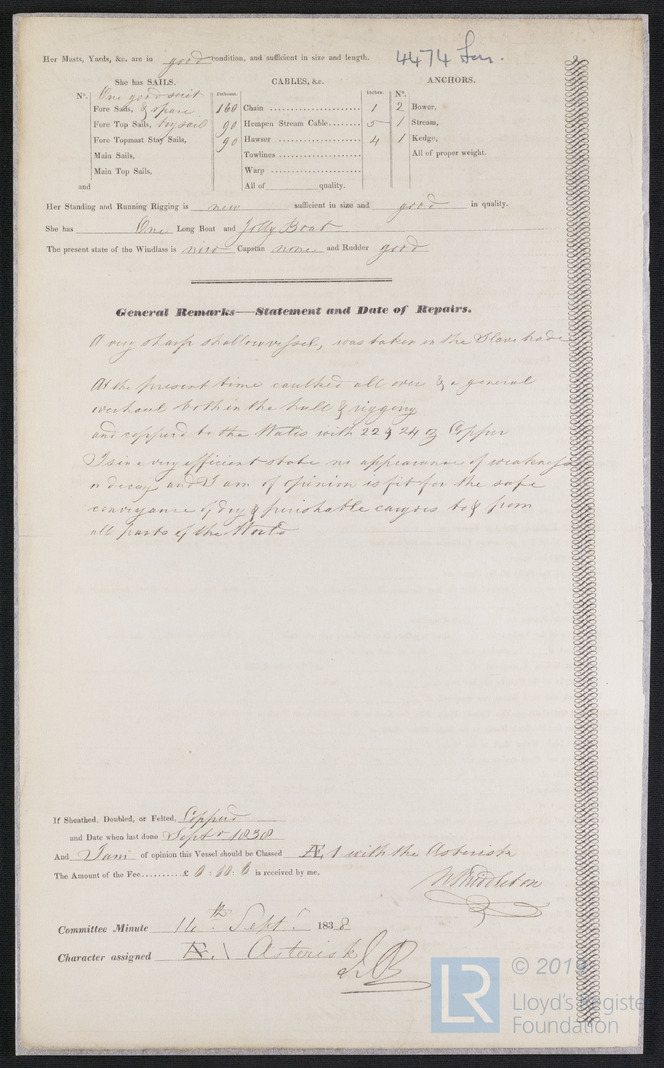 Her Masts, Yards, &c. are in good condition, and sufficient in size and length. 4474
She has SAILS. CABLES, &c. ANCHORS.
N°. One good suit Fathoms. Inches. N°.
Fore Sails, & spare 160 Chain 1 2 Bower,
Fore Top Sails, trysail 90 Hempen Stream Cable 5 1 Stream,
Fore Topmast Stay Sails, 90 Hawser 4 1 Kedge,
Main Sails, Towlines All of proper weight.
Main Top Sails, Warp
and All of quality.
Her Standing and Running Rigging is new sufficient in size and good in quality.
She has One Long Boat and Jolly Boat
The present state of the Windlass is new Capstan none and Rudder good
General Remarks—Statement and Date of Repairs.
A very sharp shallow vessel, was taken in the Slave trade
At the present time caulked all over & a general
overhaul both in the hull & rigging
and copperd to the Wales with 22 & 24 oz Copper
Is in a very efficient state no appearance of weakness
or decay and I am of opinion is fit for the safe
conveyance of dry & perishable cargoes to & from
all parts of the World
If Sheathed, Doubled, or Felted, Copperd
and Date when last done Septr 1838
And I am of opinion this Vessel should be Classed Æ 1 with the Asterisk
The Amount of the Fee £ is received by me.
W Middleton
Committee Minute Septr 1838
Character assigned Æ. 1 Asterisk
LR © 2019
Lloyd's Register
Foundation